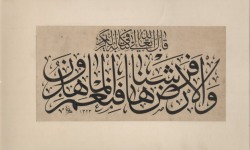 قال الله تعالى في كتابه الكريم
والارض فرشناها فنعم الماهدون